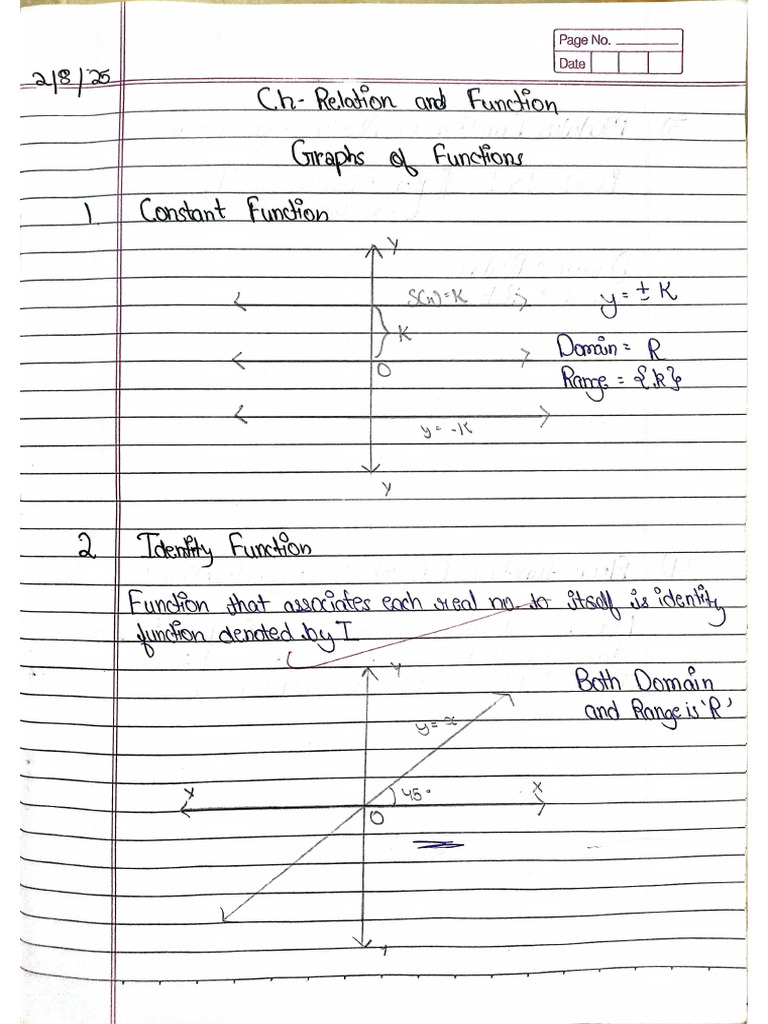 Page No.
Date
2/8/25
Ch- Relation and Function
Graphs of Functions
1 Constant Function
y
f(x)=K
y = ± K
K
Domain = R
O
Range = {k}
y = -K
y
2 Identity Function
Function that associates each real no. to itself is identity
function denoted by I
y
Both Domain
and Range is 'R'
y = x
x
45°
X
O
y